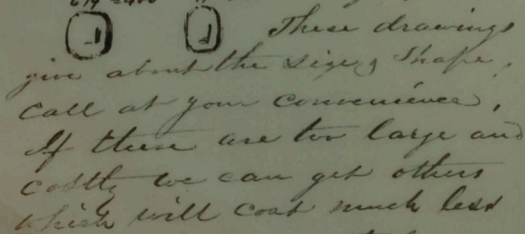 These drawings
give about the size & shape,
call at your convenience,
If these are too large and
costly we can get others
which will cost much less